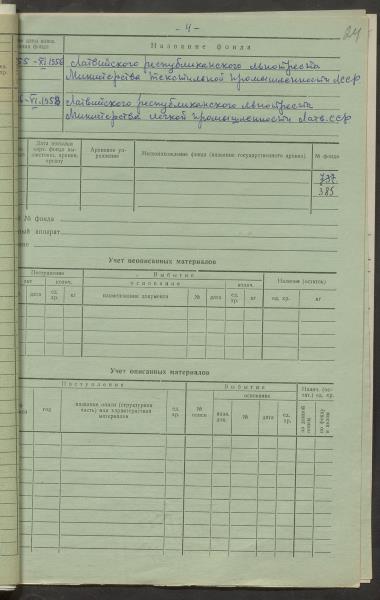 - 4 -
24
Название фонда
55 -VI.1956 Латвийского республиканского льнотреста
Министерства текстильной промышленности ЛССР
-VI.1958 Латвийского республиканского льнотреста
Министерства легкой промышленности Латв. ССР
Местонахождение фонда (название государственного архива)
№ фонда
737
385
№ фонда
аппарат
Учет неописанных материалов
Поступление
Выбытие
Наличие (остаток)
основание
колич.
дата
ед. хр.
кг
наименование документа
№
дата
ед. хр.
кг
ед. хр.
кг
Учет описанных материалов
Поступление
Выбытие
год
название описи (структурная
часть) или характеристика
материалов
ед. хр.
№ описи
основание
№
дата
ед. хр.
по данной описи
по фонду в целом